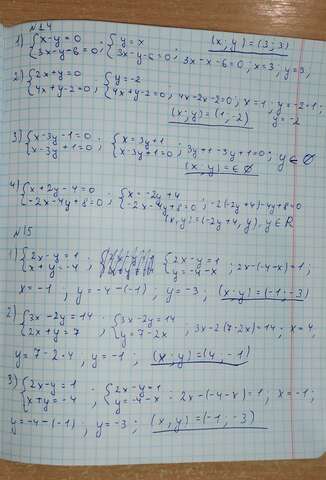 №14
1) {x-y=0 3x-y-6=0; {y=x 3x-y-6=0; 3x-x-6=0; x=3, y=3, (x; y)=(3; 3)
2) {2x+y=0 4x+y-2=0; {y=-2 4x+y-2=0; 4x-2x-2=0; x=1, y=-2·1, y=-2 (x; y)=(1, -2)
3) {x-3y-1=0 x-3y+1=0; {x=3y+1 x-3y+1=0; 3y+1-3y+1=0; y∈∅ (x; y)=∈∅
4) {x+2y-4=0 -2x-4y+8=0; {x=-2y+4 -2x-4y+8=0; -2(-2y+4)-4y+8=0 (x, y)=(-2y+4, y), y∈R
№15
1) {2x-y=1 x+y=-4; {2x-y=1 y=-4-x; 2x-(-4-x)=1;
x=-1; y=-4-(-1), y=-3, (x; y)=(-1, -3)
2) {3x-2y=14 2x+y=7; {3x-2y=14 y=7-2x; 3x-2(7-2x)=14, x=4,
y=7-2·4, y=-1; (x; y)=(4, -1)
3) {2x-y=1 x+y=-4; {2x-y=1 y=-4-x; 2x-(-4-x)=1, x=-1;
y=-4-(-1), y=-3; (x, y)=(-1; -3)